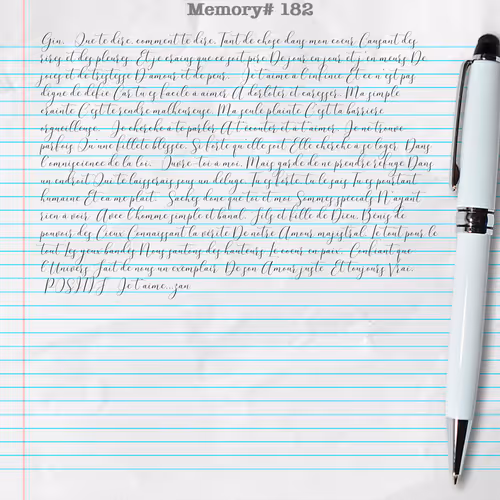 Memory# 182
Gin, Que te dire, comment te dire, Tant de chose dans mon coeur Causant des
rires et des pleures, Et je crains que ce soit pire De jour en jour et j'en meurs De
joies et de tristesse D'amour et de peur... Je t'aime à l'infinie Et ce n'est pas
digne de défie Car tu es facile a aimer A dorloter et caresser, Ma simple
crainte C'est te rendre malheureuse, Ma seule plainte C'est ta barrière
orgueilleuse, Je cherche à te parler A t'écouter et a t'aimer, Je ne trouve
parfois Qu'une fillete blessée, Si forte qu'elle soit Elle cherche a se loger, Dans
l'omniscience de la loi, Ouvre-toi à moi, Mais garde de ne prendre refuge Dans
un endroit Qui te laisserais sous un déluge, Tu es forte, tu le sais Tu es pourtant
humaine Et ça me plait, Saches donc que toi et moi Sommes specials N'ayant
rien à voir Avec l'homme simple et banal, Fils et fille de Dieu, Bénis de
pouvoir des Cieux Connaissant la vérité De notre Amour magistral, Le tout pour le
tout Les yeux bandés Nous sautons des hauteurs Le coeur en paix, Confiant que
l'Univers Fait de nous un exemplair De son Amour juste Et toujours Vrai,
Je t'aime...zan